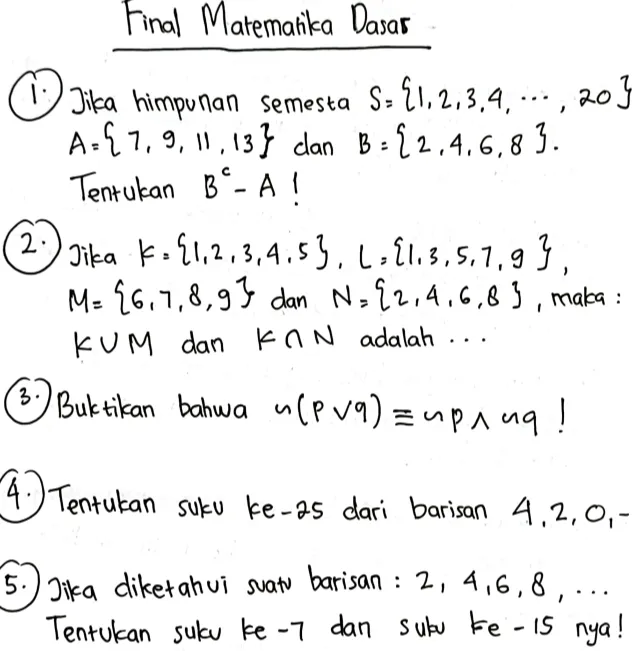 Final Matematika Dasar
1. Jika himpunan semesta S = {1, 2, 3, 4, ..., 20}
A = {7, 9, 11, 13} dan B = {2, 4, 6, 8}.
Tentukan Bᶜ - A !
2. Jika K = {1, 2, 3, 4, 5}, L = {1, 3, 5, 7, 9},
M = {6, 7, 8, 9} dan N = {2, 4, 6, 8}, maka :
K ∪ M dan K ∩ N adalah ...
3. Buktikan bahwa ~(p ∨ q) ≡ ~p ∧ ~q !
4. Tentukan suku ke-25 dari barisan 4, 2, 0, -
5. Jika diketahui suatu barisan : 2, 4, 6, 8, ...
Tentukan suku ke-7 dan suku ke-15 nya!